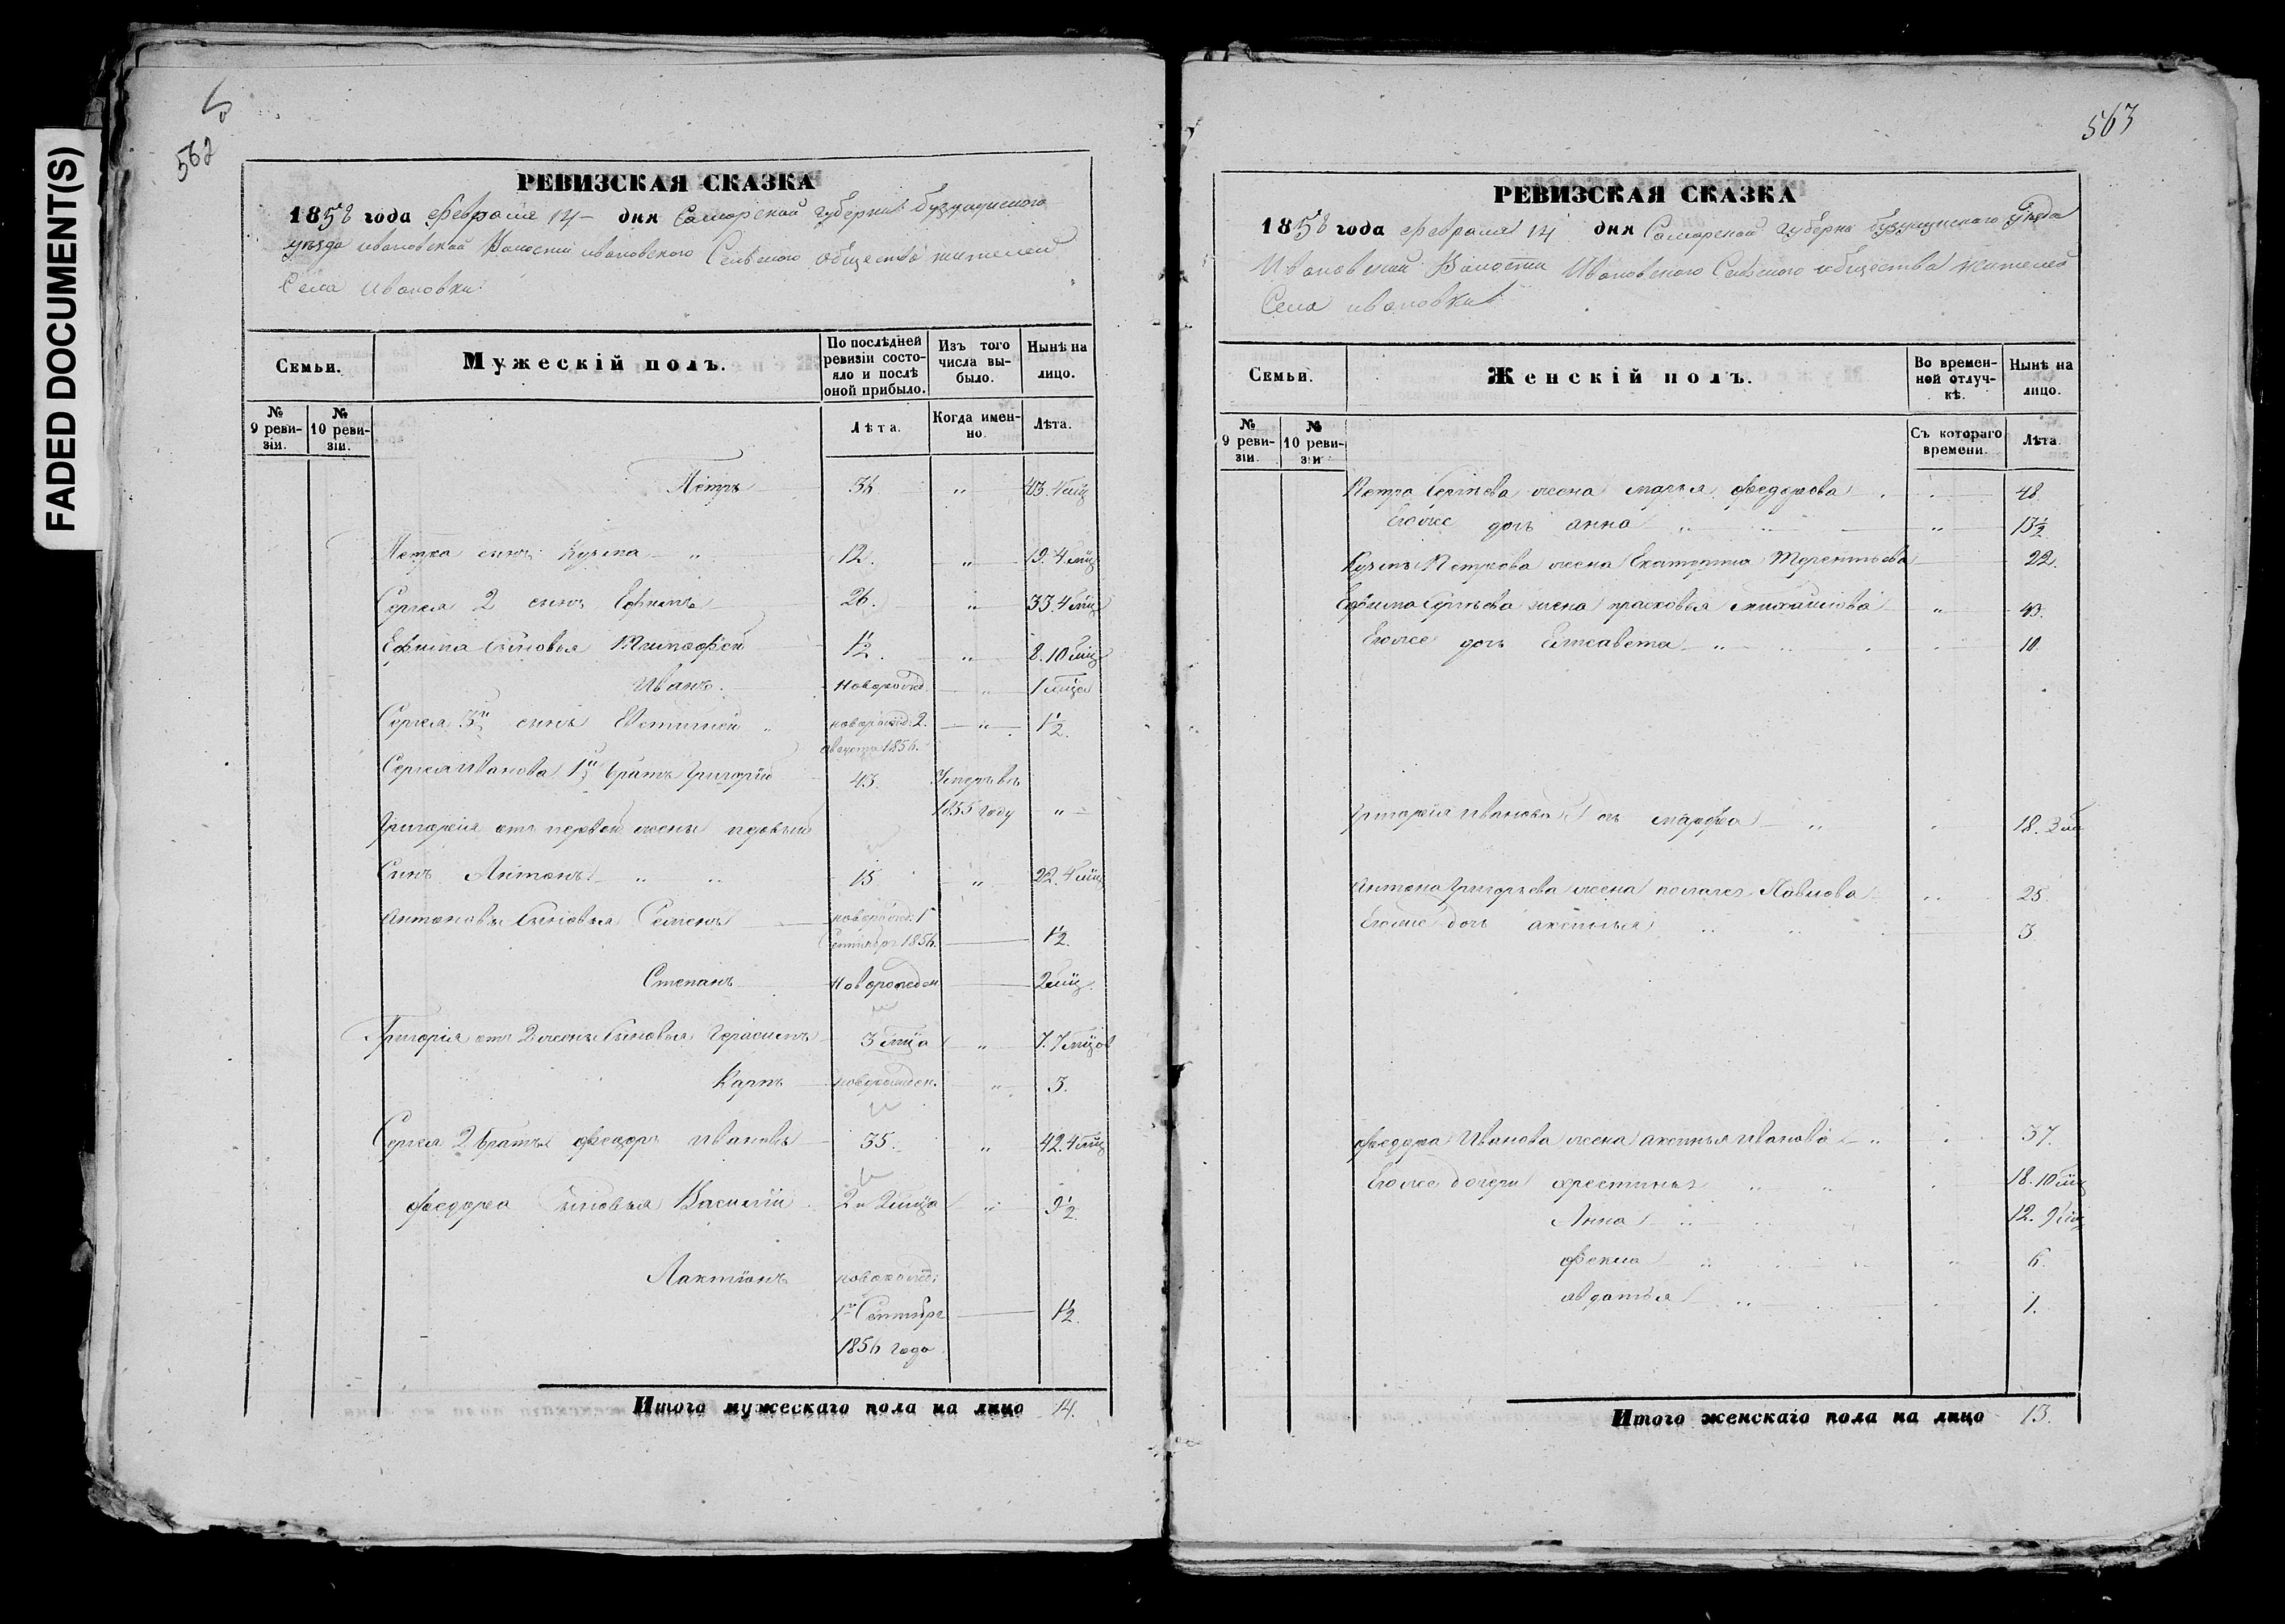 FADED DOCUMENT(S)
562
РЕВИЗСКАЯ СКАЗКА
1858 года февраля 14 дня Самарской губернии Бузулукского
уезда ивановской Волости ивановского Сельского общества жителей
Села Ивановки
Семьи.
Мужескій полъ.
По послѣдней ревизіи состояло и послѣ оной прибыло.
Изъ того числа выбыло.
Нынѣ на лицо.
№ 9 ревизіи.
№ 10 ревизіи.
Лѣта.
Когда именно.
Лѣта.
Петръ 36 " 43. 4 мѣц
Петра сынъ Кузьма " 12. " 19. 4 мѣц
Сергея 2 сынъ Ефимъ 26. " 33. 4 мѣц
Ефима сыновья Тимофей 1½. " 8. 10 мѣц
Иванъ. Новорожд. " 1 мѣца
Сергея 3й сынъ новорожд: 2. " 1½.
августа 1856.
Сергея Иванова 1й братъ Григорій 43. Умеръ въ
1855 году "
Григорія отъ первой жены
Сынъ Антонъ " " 15 " 22. 4 мѣц
Антоновы Сыновья Семенъ новорожд: 1
Сентябр 1856. 1½.
Степанъ Новорожден 2 мѣц.
Григорія отъ 2 жены Сыновья Герасимъ 3 мѣца " 7. 7 мѣцов
Карпъ новорожден. " 3.
Сергея 2 братъ федоръ Ивановъ 35. " 42. 4 мѣц
федора сыновья Василій 2 и 2 мѣца " 9½.
Лактіонъ новорожд:
1го Сентябр 1½.
1856 года
Итого мужескаго пола на лицо 14.
563
РЕВИЗСКАЯ СКАЗКА
1858 года февраля 14 дня Самарской Губерни бузулукского Уезда
Ивановской Волости Ивановского Сельского общества жителей
Села ивановки
Семьи.
Женскій полъ.
Во временной отлучкѣ.
Нынѣ на лицо.
№ 9 ревизіи.
№ 10 ревизіи
Съ котораго времени.
Лѣта.
Петра Сергѣева жена марья федорова 48
Егоже дочь анна " 13½
Кузьмы Петрова жена Екатерина Терентьева 22.
Ефима Сергѣева жена прасковья михайлова " 43.
Егоже дочь Елисавета " 10
Григорія Иванова дочь марфа " 18. 3 мѣ
Антона Григорьева жена Павлова 25.
Егоже дочь аксинья 3
федора Иванова жена аксинья Иванова " 37.
Егоже дочери хрестинья 18. 10 мѣц
Анна 12. 9 мѣц
фекла 6.
авдотья 1.
Итого женскаго пола на лицо 13.